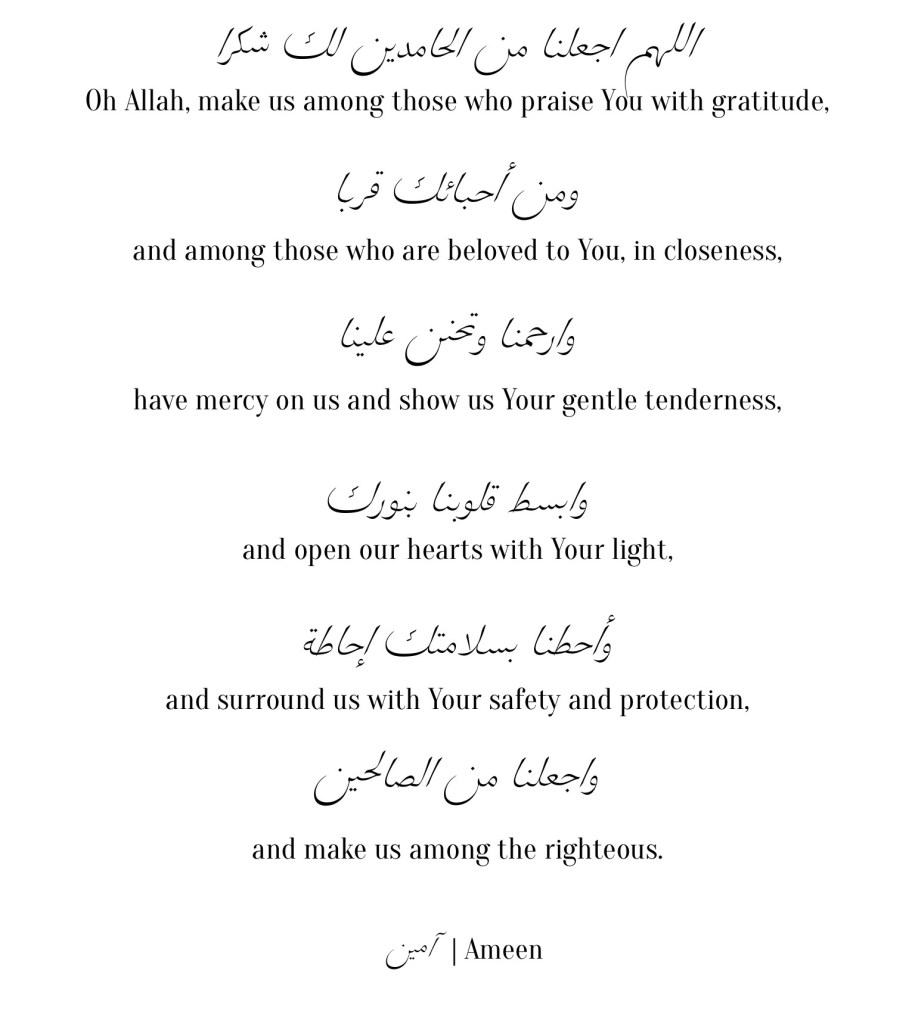 اللهم اجعلنا من الحامدين لك شكرا
Oh Allah, make us among those who praise You with gratitude,
ومن أحبائك قربا
and among those who are beloved to You, in closeness,
وارحمنا وتحنن علينا
have mercy on us and show us Your gentle tenderness,
وابسط قلوبنا بنورك
and open our hearts with Your light,
وأحطنا بسلامتك إحاطة
and surround us with Your safety and protection,
واجعلنا من الصالحين
and make us among the righteous.
آمين | Ameen